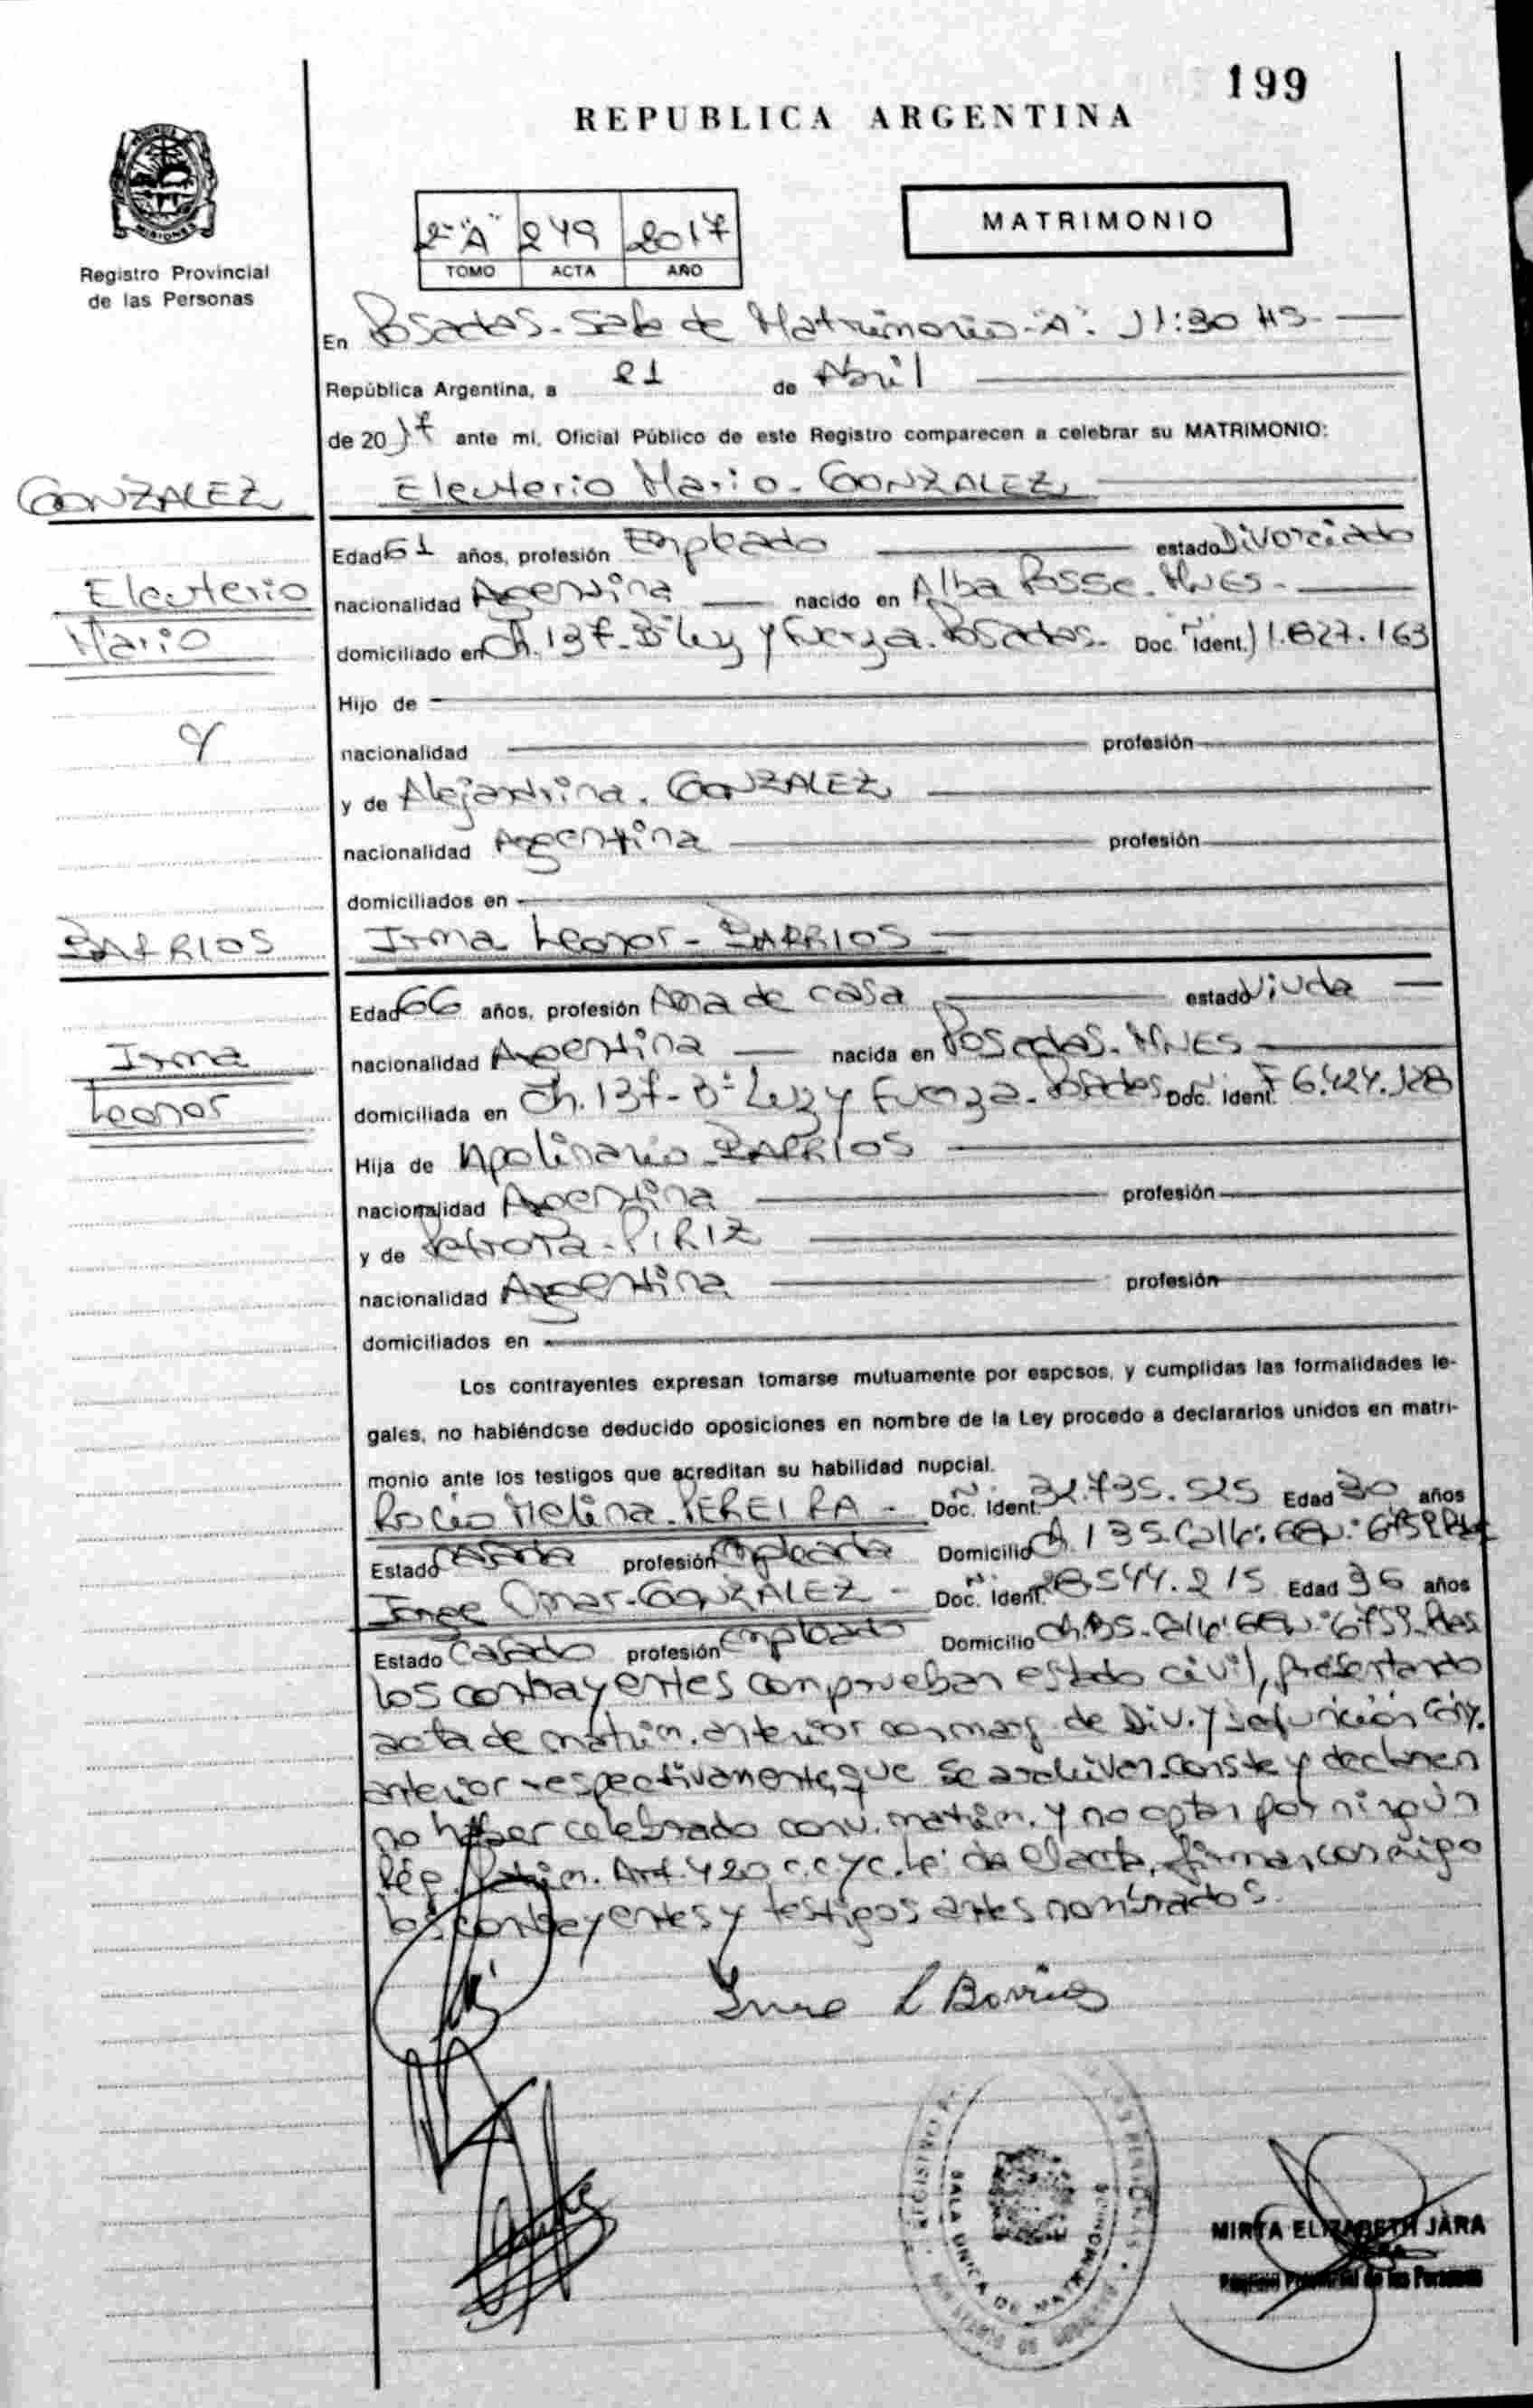 199
REPUBLICA ARGENTINA
MISIONES
Registro Provincial
de las Personas
2º "A" 249 2017
TOMO ACTA AÑO
MATRIMONIO
En Posadas - Sala de Matrimonio "A". 11:30 HS-
República Argentina, a 21 de Abril
de 2017 ante mi, Oficial Público de este Registro comparecen a celebrar su MATRIMONIO:
GONZALEZ
Eleuterio Mario - GONZALEZ
Edad 61 años, profesión Empleado estado Divorciado
Eleuterio
Mario
nacionalidad Argentina nacido en Alba Posse - Mnes -
domiciliado en Ch. 137 - Bº Luz y Fuerza. Posadas - Doc. Ident. 11.827.163
Hijo de
y
nacionalidad profesión
y de Alejandrina. GONZALEZ
nacionalidad Argentina profesión
domiciliados en
BARRIOS
Irma Leonor - BARRIOS
Edad 66 años, profesión Ama de casa estado Viuda
Irma
Leonor
nacionalidad Argentina nacida en Posadas - Mnes
domiciliada en Ch. 137 - Bº Luz y Fuerza - Posadas Doc. Ident. F 6.424.128
Hija de Apolinario - BARRIOS
nacionalidad Argentina profesión
y de Petrona - PIRIZ
nacionalidad Argentina profesión
domiciliados en
Los contrayentes expresan tomarse mutuamente por esposos, y cumplidas las formalidades le-
gales, no habiéndose deducido oposiciones en nombre de la Ley procedo a declararlos unidos en matri-
monio ante los testigos que acreditan su habilidad nupcial.
Rocío Melina - PEREIRA - Doc. Ident. 32.735.525 Edad 30 años
Estado Casada profesión Empleada Domicilio Ch 135. Calle: 66 Nº 6759
Jorge Omar - GONZALEZ - Doc. Ident. 28.544.215 Edad 36 años
Estado Casado profesión Empleado Domicilio Ch. 135 - Calle 66 Nº 6759 - Pdas
los contrayentes comprueban estado civil, presentando
acta de matrim. anterior con marg. de Div. y defunción cony.
anterior respectivamente, que se archivan. conste y declaren
no haber celebrado conv. matrim. y no optan por ningún
Rég. Patrim. Art. 420 c.c y c. Leída el acta, firman conmigo
los contrayentes y testigos antes nombrados.
Irma L Barrios
SALA UNICA DE MATRIMONIOS
MIRTA ELIZABETH JARA
Registro Provincial de las Personas